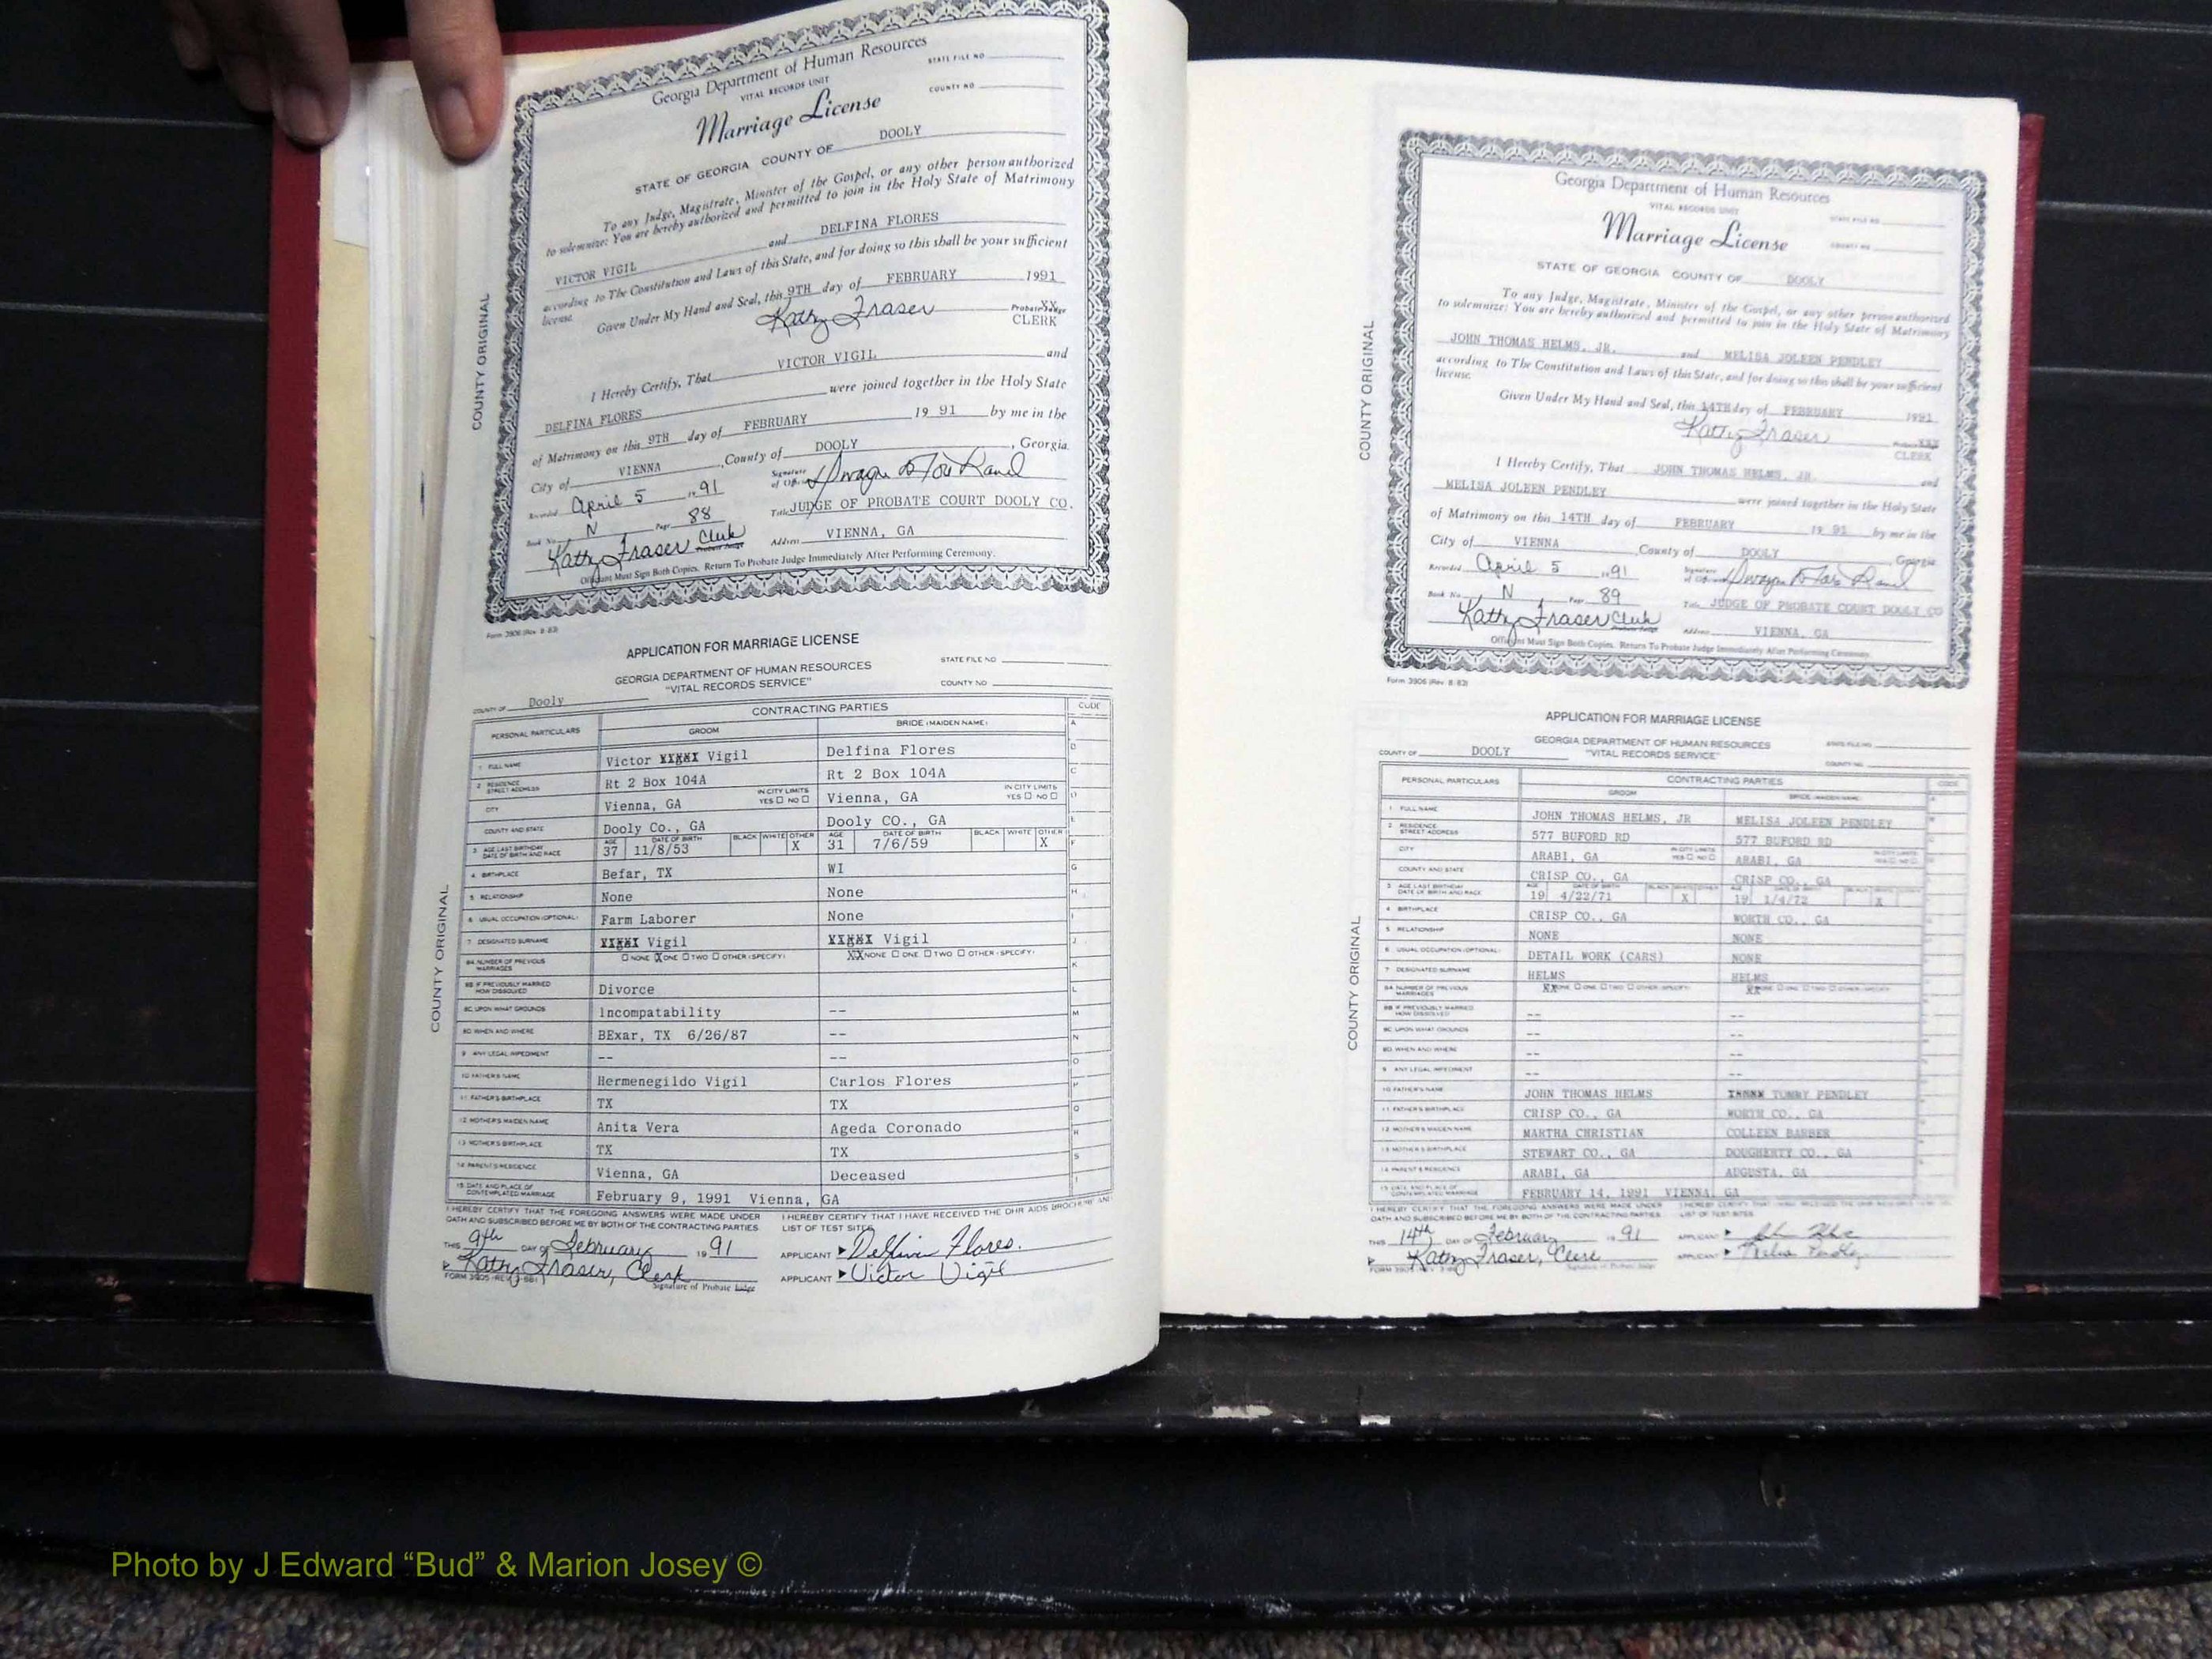 Georgia Department of Human Resources
VITAL RECORDS UNIT
STATE FILE NO
Marriage License
COUNTY NO
STATE OF GEORGIA COUNTY OF DOOLY
To any Judge, Magistrate, Minister of the Gospel, or any other person authorized
to solemnize: You are hereby authorized and permitted to join in the Holy State of Matrimony
VICTOR VIGIL and DELFINA FLORES
according to The Constitution and Laws of this State, and for doing so this shall be your sufficient
license.
Given Under My Hand and Seal, this 9TH day of FEBRUARY 1991
Kathy Fraser
Probate Judge
CLERK
I Hereby Certify, That VICTOR VIGIL and
DELFINA FLORES were joined together in the Holy State
of Matrimony on this 9TH day of FEBRUARY 19 91 by me in the
City of VIENNA, County of DOOLY, Georgia.
Recorded April 5 19 91
Signature of Official
Book No. N Page 88
Title JUDGE OF PROBATE COURT DOOLY CO.
Kathy Fraser Clerk
Probate Judge
Address VIENNA, GA
Officiant Must Sign Both Copies. Return To Probate Judge Immediately After Performing Ceremony.
COUNTY ORIGINAL
Form 3906 (Rev. 8-83)
APPLICATION FOR MARRIAGE LICENSE
GEORGIA DEPARTMENT OF HUMAN RESOURCES
"VITAL RECORDS SERVICE"
STATE FILE NO
COUNTY NO
COUNTY OF Dooly
PERSONAL PARTICULARS CONTRACTING PARTIES CODE
GROOM BRIDE (MAIDEN NAME)
1 FULL NAME Victor XXXXX Vigil Delfina Flores
2 RESIDENCE STREET ADDRESS Rt 2 Box 104A Rt 2 Box 104A
CITY Vienna, GA IN CITY LIMITS YES NO Vienna, GA IN CITY LIMITS YES NO
COUNTY AND STATE Dooly Co., GA Dooly CO., GA
3 AGE LAST BIRTHDAY DATE OF BIRTH AND RACE AGE 37 DATE OF BIRTH 11/8/53 BLACK WHITE OTHER X AGE 31 DATE OF BIRTH 7/6/59 BLACK WHITE OTHER X
4 BIRTHPLACE Befar, TX WI
5 RELATIONSHIP None None
6 USUAL OCCUPATION (OPTIONAL) Farm Laborer None
7 DESIGNATED SURNAME XXXXX Vigil XXXXX Vigil
8A NUMBER OF PREVIOUS MARRIAGES NONE X ONE TWO OTHER (SPECIFY) XX NONE ONE TWO OTHER (SPECIFY)
8B IF PREVIOUSLY MARRIED HOW DISSOLVED Divorce
8C UPON WHAT GROUNDS Incompatability --
8D WHEN AND WHERE BExar, TX 6/26/87 --
9 ANY LEGAL IMPEDIMENT -- --
10 FATHER'S NAME Hermenegildo Vigil Carlos Flores
11 FATHER'S BIRTHPLACE TX TX
12 MOTHER'S MAIDEN NAME Anita Vera Ageda Coronado
13 MOTHER'S BIRTHPLACE TX TX
14 PARENT'S RESIDENCE Vienna, GA Deceased
15 DATE AND PLACE OF CONTEMPLATED MARRIAGE February 9, 1991 Vienna, GA
I HEREBY CERTIFY THAT THE FOREGOING ANSWERS WERE MADE UNDER
OATH AND SUBSCRIBED BEFORE ME BY BOTH OF THE CONTRACTING PARTIES
I HEREBY CERTIFY THAT I HAVE RECEIVED THE DHR AIDS BROCHURE AND
LIST OF TEST SITES
THIS 9th DAY OF February 19 91
APPLICANT Delfina Flores.
Kathy Fraser, Clerk
APPLICANT Victor Vigil
Signature of Probate Judge
COUNTY ORIGINAL
Georgia Department of Human Resources
VITAL RECORDS UNIT
STATE FILE NO
Marriage License
COUNTY NO
STATE OF GEORGIA COUNTY OF DOOLY
To any Judge, Magistrate, Minister of the Gospel, or any other person authorized
to solemnize: You are hereby authorized and permitted to join in the Holy State of Matrimony
JOHN THOMAS HELMS, JR. and MELISA JOLEEN PENDLEY
according to The Constitution and Laws of this State, and for doing so this shall be your sufficient
license.
Given Under My Hand and Seal, this 14TH day of FEBRUARY 1991
Kathy Fraser
CLERK
I Hereby Certify, That JOHN THOMAS HELMS, JR. and
MELISA JOLEEN PENDLEY were joined together in the Holy State
of Matrimony on this 14TH day of FEBRUARY 19 91 by me in the
City of VIENNA, County of DOOLY, Georgia
Recorded April 5 19 91
Signature of Official
Book No. N Page 89
Title JUDGE OF PROBATE COURT DOOLY CO
Kathy Fraser Clerk
Address VIENNA, GA
Officiant Must Sign Both Copies. Return To Probate Judge Immediately After Performing Ceremony.
COUNTY ORIGINAL
Form 3906 (Rev. 8-83)
APPLICATION FOR MARRIAGE LICENSE
GEORGIA DEPARTMENT OF HUMAN RESOURCES
"VITAL RECORDS SERVICE"
STATE FILE NO
COUNTY NO
COUNTY OF DOOLY
PERSONAL PARTICULARS CONTRACTING PARTIES CODE
GROOM BRIDE (MAIDEN NAME)
1 FULL NAME JOHN THOMAS HELMS, JR MELISA JOLEEN PENDLEY
2 RESIDENCE STREET ADDRESS 577 BUFORD RD 577 BUFORD RD
CITY ARABI, GA IN CITY LIMITS YES NO ARABI, GA IN CITY LIMITS YES NO
COUNTY AND STATE CRISP CO., GA CRISP CO., GA
3 AGE LAST BIRTHDAY DATE OF BIRTH AND RACE 19 4/22/71 X 19 1/4/72 X
4 BIRTHPLACE CRISP CO., GA WORTH CO., GA
5 RELATIONSHIP NONE NONE
6 USUAL OCCUPATION (OPTIONAL) DETAIL WORK (CARS) NONE
7 DESIGNATED SURNAME HELMS HELMS
8A NUMBER OF PREVIOUS MARRIAGES XX NONE ONE TWO OTHER (SPECIFY) XX NONE ONE TWO OTHER (SPECIFY)
8B IF PREVIOUSLY MARRIED HOW DISSOLVED -- --
8C UPON WHAT GROUNDS -- --
8D WHEN AND WHERE -- --
9 ANY LEGAL IMPEDIMENT -- --
10 FATHER'S NAME JOHN THOMAS HELMS TOMMY PENDLEY
11 FATHER'S BIRTHPLACE CRISP CO., GA WORTH CO., GA
12 MOTHER'S MAIDEN NAME MARTHA CHRISTIAN COLLEEN BARBER
13 MOTHER'S BIRTHPLACE STEWART CO., GA DOUGHERTY CO., GA
14 PARENT'S RESIDENCE ARABI, GA AUGUSTA, GA
15 DATE AND PLACE OF CONTEMPLATED MARRIAGE FEBRUARY 14, 1991 VIENNA, GA
I HEREBY CERTIFY THAT THE FOREGOING ANSWERS WERE MADE UNDER
OATH AND SUBSCRIBED BEFORE ME BY BOTH OF THE CONTRACTING PARTIES
LIST OF TEST SITES
THIS 14th DAY OF February 19 91
APPLICANT
Kathy Fraser, Clerk
APPLICANT
Signature of Probate Judge
COUNTY ORIGINAL
Photo by J Edward “Bud” & Marion Josey ©